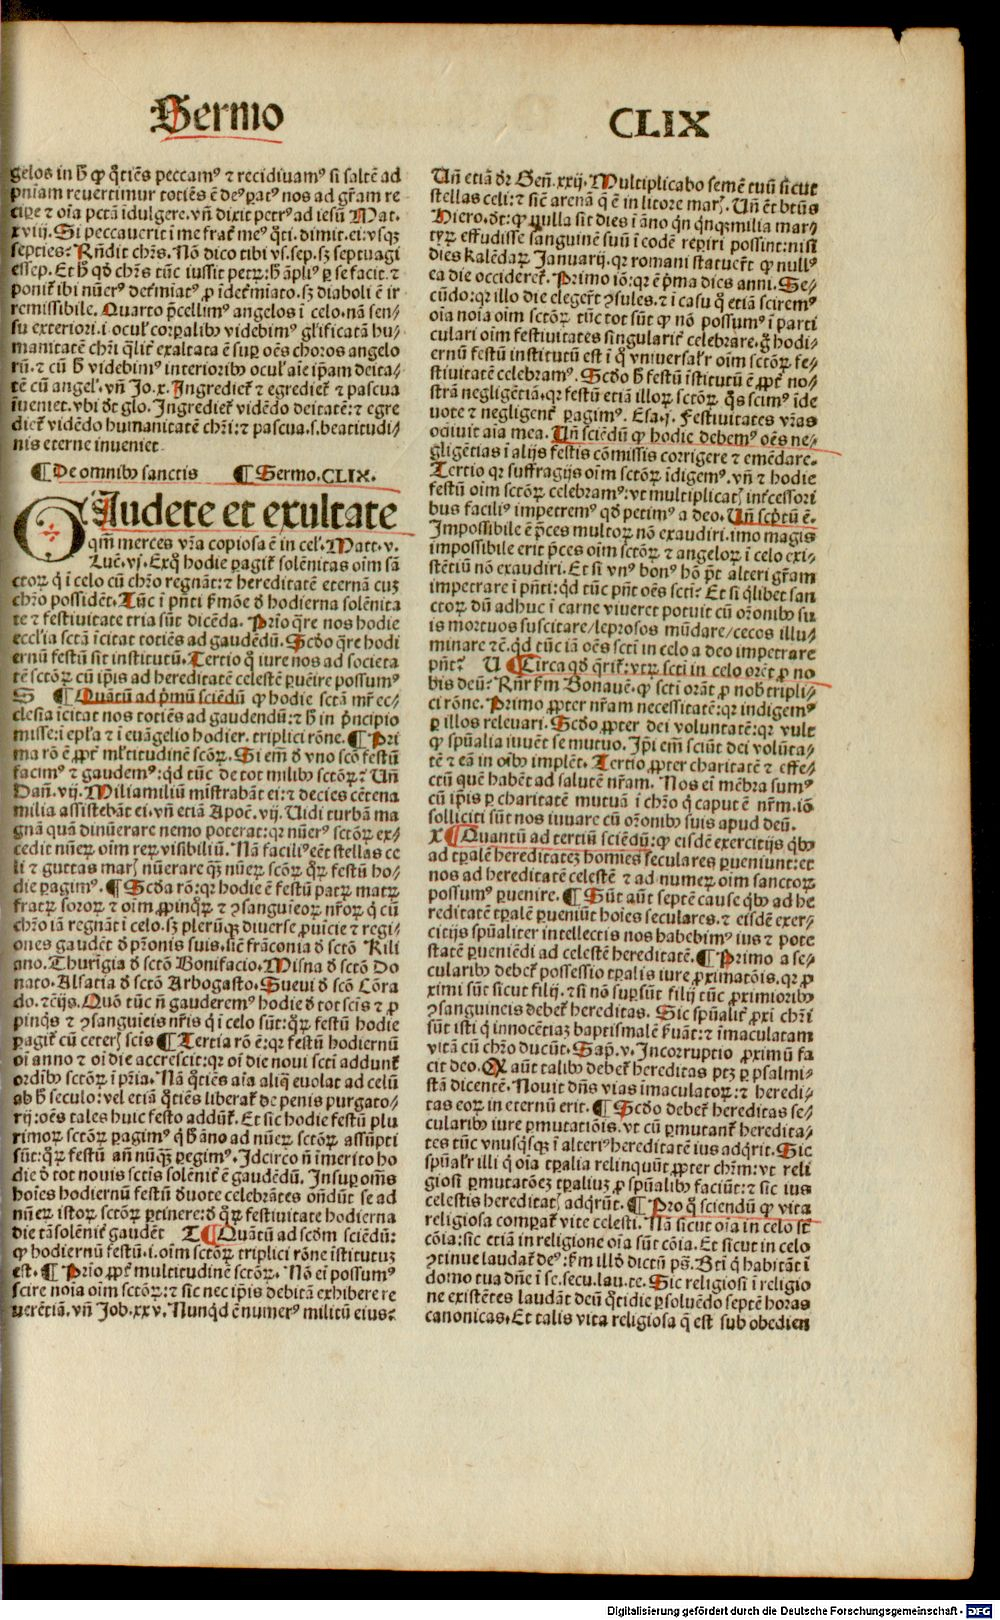 Sermo
CLIX
gelos in h̄ ꝙ q̄tiēs peccamꝰ ⁊ recidiuamꝰ si saltē ad
pniam reuertimur totiēs ē deꝰ patꝰ nos ad gr̄am re
cipe ⁊ oīa pctā idulgere. vn̄ dixit petrꝰ ad iesū Mat.
xviij. Si peccauerit ī me frat̄ meꝰ q̄ti. dimit. ei: vsqꝫ
septies: Rn̄dit chr̄s. Nō dico tibi vs. sep. sꝫ septuagi
essep. Et h̄ qd̓ chr̄s tūc iussit petꝝ: h̄ āpliꝰ ꝑ se facit. ⁊
ponit̄ ibi nūerꝰ det̄miatꝰ ꝓ īdet̄miato. sꝫ diaboli ē ir
remissibile. Quarto p̄cellimꝰ angelos ī celo. nā sen/
su exteriori. i. oculꝭ corꝑalibꝰ videbimꝰ gl̓ificatā hu/
manitatē chr̄i qͥlit̄ exaltata ē suꝑ oēs choros angelo
rū. ⁊ cū h̄ videbimꝰ interioribꝰ oculꝭ aīe ip̄am deita/
tē cū angelꝭ. vn̄ Jo. x. Ingrediet̄ ⁊ egrediet̄ ⁊ pascua
īueniet. vbi dt̄ glo. Ingrediet̄ vidēdo deitatē: ⁊ egre
diet̄ vidēdo humanitatē chr̄i: ⁊ pascua. s. beatitudi/
nis eterne inueniet
¶ De omnibꝰ sanctis ¶ Sermo. CLIX.
GAudete et exultate
qm̄ merces vr̄a copiosa ē in celꝭ. Matt. v.
Luc̄. vj. Exq̄ hodie ꝑagit̄ solēnitas oīm sā
ctoꝝ q̄ ī celo cū chr̄o regnāt: ⁊ hereditatē eternā cuꝫ
chr̄o possidēt. Tūc ī pn̄ti s̄mōe d̓ hodierna solēnita
te ⁊ festiuitate tria sūt dicēda. Prīo q̄re nos hodie
ecclīa sctā īcitat totiēs ad gaudēdū. Scd̓o q̄re hodi
ernū festū sit institutū. Tertio qͦ iure nos ad societa
tē sctōꝝ cū ip̄is ad hereditatē celestē ꝑuēire possumꝰ
S ¶ Quātū ad pͥmū sciēdū ꝙ hodie sctā mr̄ ec/
clesia īcitat nos totiēs ad gaudendū: ⁊ h̄ in pͥncipio
misse: ī epl̓a ⁊ ī euāgelio hodierꝭ. triplici rōne. ¶ Pri
ma rō ē ꝓpt̄ ml̓titudinē scōꝝ. Si em̄ d̓ vno scō festū
facimꝰ ⁊ gaudemꝰ: qͥd tūc de tot milibꝰ sctōꝝ? Un̄
Dan̄. vij. Miliamiliū mīstrabāt ei: ⁊ decies cētena
milia assistebāt ei. vn̄ etiā Apoc̄. vij. Uidi turbā ma
gnā quā dinūerare nemo poterat: qꝛ nūerꝰ sctōꝝ ex/
cedit nūeꝝ oīm reꝝ visibiliū. Nā faciliꝰ eēt stellas ce
li ⁊ guttas marꝭ nūerare qꝫ̄ nūeꝝ scōꝝ qͦꝝ festū ho/
die ꝑagimꝰ. ¶ Scd̓a rō: qꝛ hodie ē festū patꝝ matꝝ
fratꝝ soroꝝ ⁊ oīm ꝓpinqͦꝝ ⁊ ꝯsanguieoꝝ nr̄oꝝ q̄ cū
chr̄o iā regnāt ī celo. sꝫ plerūqꝫ diuerse ꝓuicie ⁊ regi/
ones gaudēt d̓ pr̄onis suis. sic̄ frāconia d̓ sctō Kili
ano. Thurīgia d̓ sctō Bonifacio. Misna d̓ sctō Do
nato. Alsatia d̓ sctō Arbogasto. Sueui d̓ scō Cōra
do. ⁊c̄ijs. Quō tūc n̄ gauderemꝰ hodie d̓ tot scīs ⁊ ꝓ
pinqꝭ ⁊ ꝯsanguieis nr̄is q̄ ī celo sūt: qͦꝝ festū hodie
ꝑagit̄ cū ceterꝭ scīs ¶ Tertia rō ē: qꝛ festū hodiernū
oī anno ⁊ oī die accrescit: qꝛ oī die noui scti addunt̄
ordībꝰ sctōꝝ ī pr̄ia. Nā qͦtiēs aīa aliq̄ euolat ad celū
ab h̄ seculo: vel etiā qͦtiēs liberat̄ de penis purgato/
rij: oēs tales huic festo addūt̄. Et sic hodie festū plu
rimoꝝ sctōꝝ ꝑagimꝰ q̄ h̄ āno ad nūeꝝ sctōꝝ assūpti
sūt: qͦꝝ festū an̄ nūqꝫ ꝑegimꝰ. Idcirco n̄ īmerito ho
die d̓ tot nouis sctīs solēnit̄ ē gaudēdū. Insuꝑ om̄s
hoīes hodiernū festū d̓uote celebrātes on̄dūt se ad
nūeꝝ istoꝝ sctōꝝ ꝑtinere: d̓ qͦꝝ festiuitate hodierna
die tā solēnit̄ gaudēt T ¶ Quātū ad scd̓m sciēdū:
ꝙ hodiernū festū. i. oīm sctōꝝ triplici rōne īstitutuꝫ
est. ¶ Prīo ꝓpt̄ multitudinē sctōꝝ. Nō em̄ possumꝰ
scire noīa oīm sctōꝝ: ⁊ sic nec ip̄is debitā exhibere re
uerētiā. vn̄ Job. xxv. Nunqͥd ē numerꝰ militū eius?
Un̄ etiā dr̄ Gen̄. xxij. Multiplicabo semē tuū sicut
stellas celi: ⁊ sic̄ arenā q̄ ē in litore marꝭ. Un̄ ēt btūs
Hiero. dt̄: ꝙ nulla sit dies ī āno qͥn qͥnqꝫ milia mar/
tyꝝ effudisse sanguinē suū ī eodē reꝑiri possint: nisi
diēs Kalēdaꝝ Januarij. qꝛ romani statuer̄t ꝙ nullꝰ
ea die occideret̄. Primo iō: qꝛ ē pͥma dies anni. Se/
cūdo: qꝛ illo die elegēr̄t ꝯsules. ⁊ ī casu qͦ etiā sciremꝰ
oīa noīa oīm sctōꝝ tūc tot sūt ꝙ nō possumꝰ ī parti
culari oīm festiuitates singularit̄ celebrare. g̊ hodi/
ernū festū institutū est ī qͦ vniuersal̓r oīm sctōꝝ fe/
stiuitatē celebramꝰ. Scd̓o h̄ festū īstitutū ē ꝓpt̄ no/
strā negligētiā. qꝛ festū etiā illoꝝ sctōꝝ qͦs scimꝰ īde
uote ⁊ negligent̄ ꝑagimꝰ. Esa. j. Festiuitates vr̄as
odiuit aīa mea. Un̄ sciēdū ꝙ hodie debemꝰ oēs ne/
gligētias ī alijs festis cōmissis corrigere ⁊ emēdare.
Tertio qꝛ suffragijs oīm sctōꝝ īdigemꝰ. vn̄ ⁊ hodie
festū oīm sctōꝝ celebramꝰ: vt multiplicatꝭ int̄cessori
bus faciliꝰ impetremꝰ qd̓ petimꝰ a deo. Un̄ sc̄ptū ē.
Impossibile ē p̄ces multoꝝ nō exaudiri. imo magis
impossibile erit p̄ces oīm sctōꝝ ⁊ angeloꝝ ī celo exi/
stētiū nō exaudiri. Et si vnꝰ bonꝰ hō pt̄ alteri gr̄am
impetrare ī pn̄ti: qͥd tūc pn̄t oēs scti? Et si qͥlibet san
ctoꝝ dū adhuc ī carne viueret potuit cū orōnibꝰ su
is mortuos suscitare/leprosos mūdare/cecos illu/
minare ⁊c̄. qͥd tūc iā oēs scti in celo a deo impetrare
pn̄t? U ¶ Circa qd̓ q̄rit̄: vtꝝ scti in celo orēt ꝓ no
bis deū? Rn̄r s̄m Bonauē. ꝙ scti orāt ꝓ nobꝭ tripli/
ci rōne. Primo ꝓpter nr̄am necessitatē: qꝛ indigemꝰ
ꝑ illos releuari. Scd̓o ꝓpter dei voluntatē: qꝛ vult
ꝙ spūalia iuuēt se mutuo. Ip̄i em̄ sciūt dei volūta/
tē ⁊ eā in oībꝰ implēt. Tertio ꝓpter charitatē ⁊ effe/
ctū quē habēt ad salutē nr̄am. Nos ei mēbra sumꝰ
cū ip̄is ꝑ charitatē mutuā ī chr̄o qͥ caput ē nr̄m. iō
solliciti sūt nos iuuare cū orōnibꝰ suis apud deū.
X ¶ Quantū ad tertiū sciēdū: ꝙ eisdē exercitijs qͥbꝰ
ad tꝑalē hereditatez homīes seculares ꝑueniunt: et
nos ad hereditatē celestē ⁊ ad numeꝝ oīm sanctoꝝ
possumꝰ ꝑuenire. ¶ Sūt aūt septē cause qͥbꝰ ad he
reditatē tꝑalē ꝑueniūt hoīes seculares. ⁊ eisdē exer/
citijs spūaliter intellectis nos habebimꝰ ius ⁊ pote
statē ꝑueniēdi ad celestē hereditatē. ¶ Primo a se/
cularibꝰ debet̄ possessio tꝑalis iure ꝓximatōis. qꝛ ꝓ
ximi sūt sicut filij. ⁊ si nō suꝑsūt filij tūc ꝓximioribꝰ
ꝯsanguineis debet̄ hereditas. Sic spūalit̄ ꝓxi chr̄i
sūt isti qͥ innocētiaꝫ baptismalē s̄uāt: ⁊ īmaculatam
vitā cū chr̄o ducūt. Sap̄. v. Incorruptio ꝓximū fa
cit deo. Qꝛ aūt talibꝰ debet̄ hereditas ptꝫ ꝑ psalmi/
stā dicentē. Nouit dn̄s vias īmaculatoꝝ: ⁊ heredi/
tas eoꝝ in eternū erit. ¶ Scd̓o debet̄ hereditas se/
cularibꝰ iure ꝑmutatiōis. vt cū ꝑmutant̄ heredita/
tes tūc vnusqͥsqꝫ ī alteriꝰ hereditatē ius adqͥrit. Sic
spūal̓r illi qͥ oīa tꝑalia relinquūt ꝓpter chr̄m: vt reli
giosi ꝑmutatōez tꝑaliuꝫ ꝓ spūalibꝰ faciūt: ⁊ sic ius
celestis hereditatꝭ adqͥrūt. ¶ Pro qͦ sciendū ꝙ vita
religiosa comparat̄ vite celesti. Nā sicut oīa in celo st̄
cōīa: sic etiā in religione oīa sūt cōīa. Et sicut in celo
ꝯtinue laudat̄ deꝰ: s̄m illd̓ dictū ps̄. Bt̄i qͥ habitāt ī
domo tua dn̄e ī sc̄. secu. lau. te. Sic religiosi ī religio
ne existētes laudāt deū qͦtidie ꝑsoluēdo septē horas
canonicas. Et talis vita religiosa q̄ est sub obedien
Digitalisierung gefördert durch die Deutsche Forschungsgemeinschaft - DFG